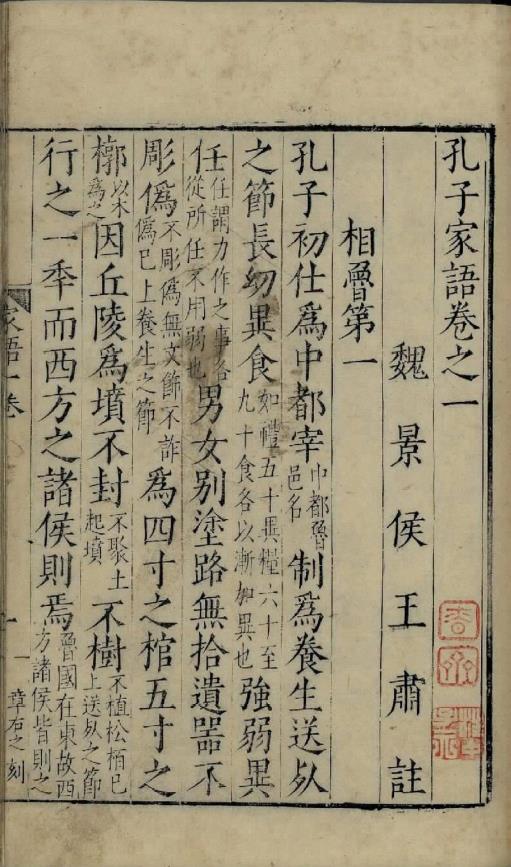 孔子家語卷之一
魏景侯王肅註
相魯第一
孔子初仕爲中都宰中都魯邑名制爲養生送㱙
之節長幼異食如禮五十異粻六十至九十食各以漸加異也強弱異
任任謂力作之事各從所任不用弱也男女别塗路無拾遺器不
彫僞不彫僞無文飾不詐僞已上養生之節爲四寸之棺五寸之
槨以木爲之因丘陵爲墳不封不聚土起墳不樹不植松栢已上送㱙之節
行之一秊而西方之諸侯則焉魯國在東故西方諸侯皆則之
家語一卷
一
章右之刻